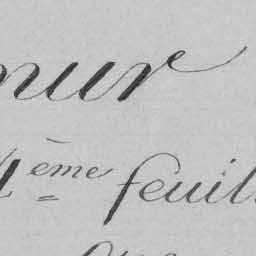 mur
4ème feuil